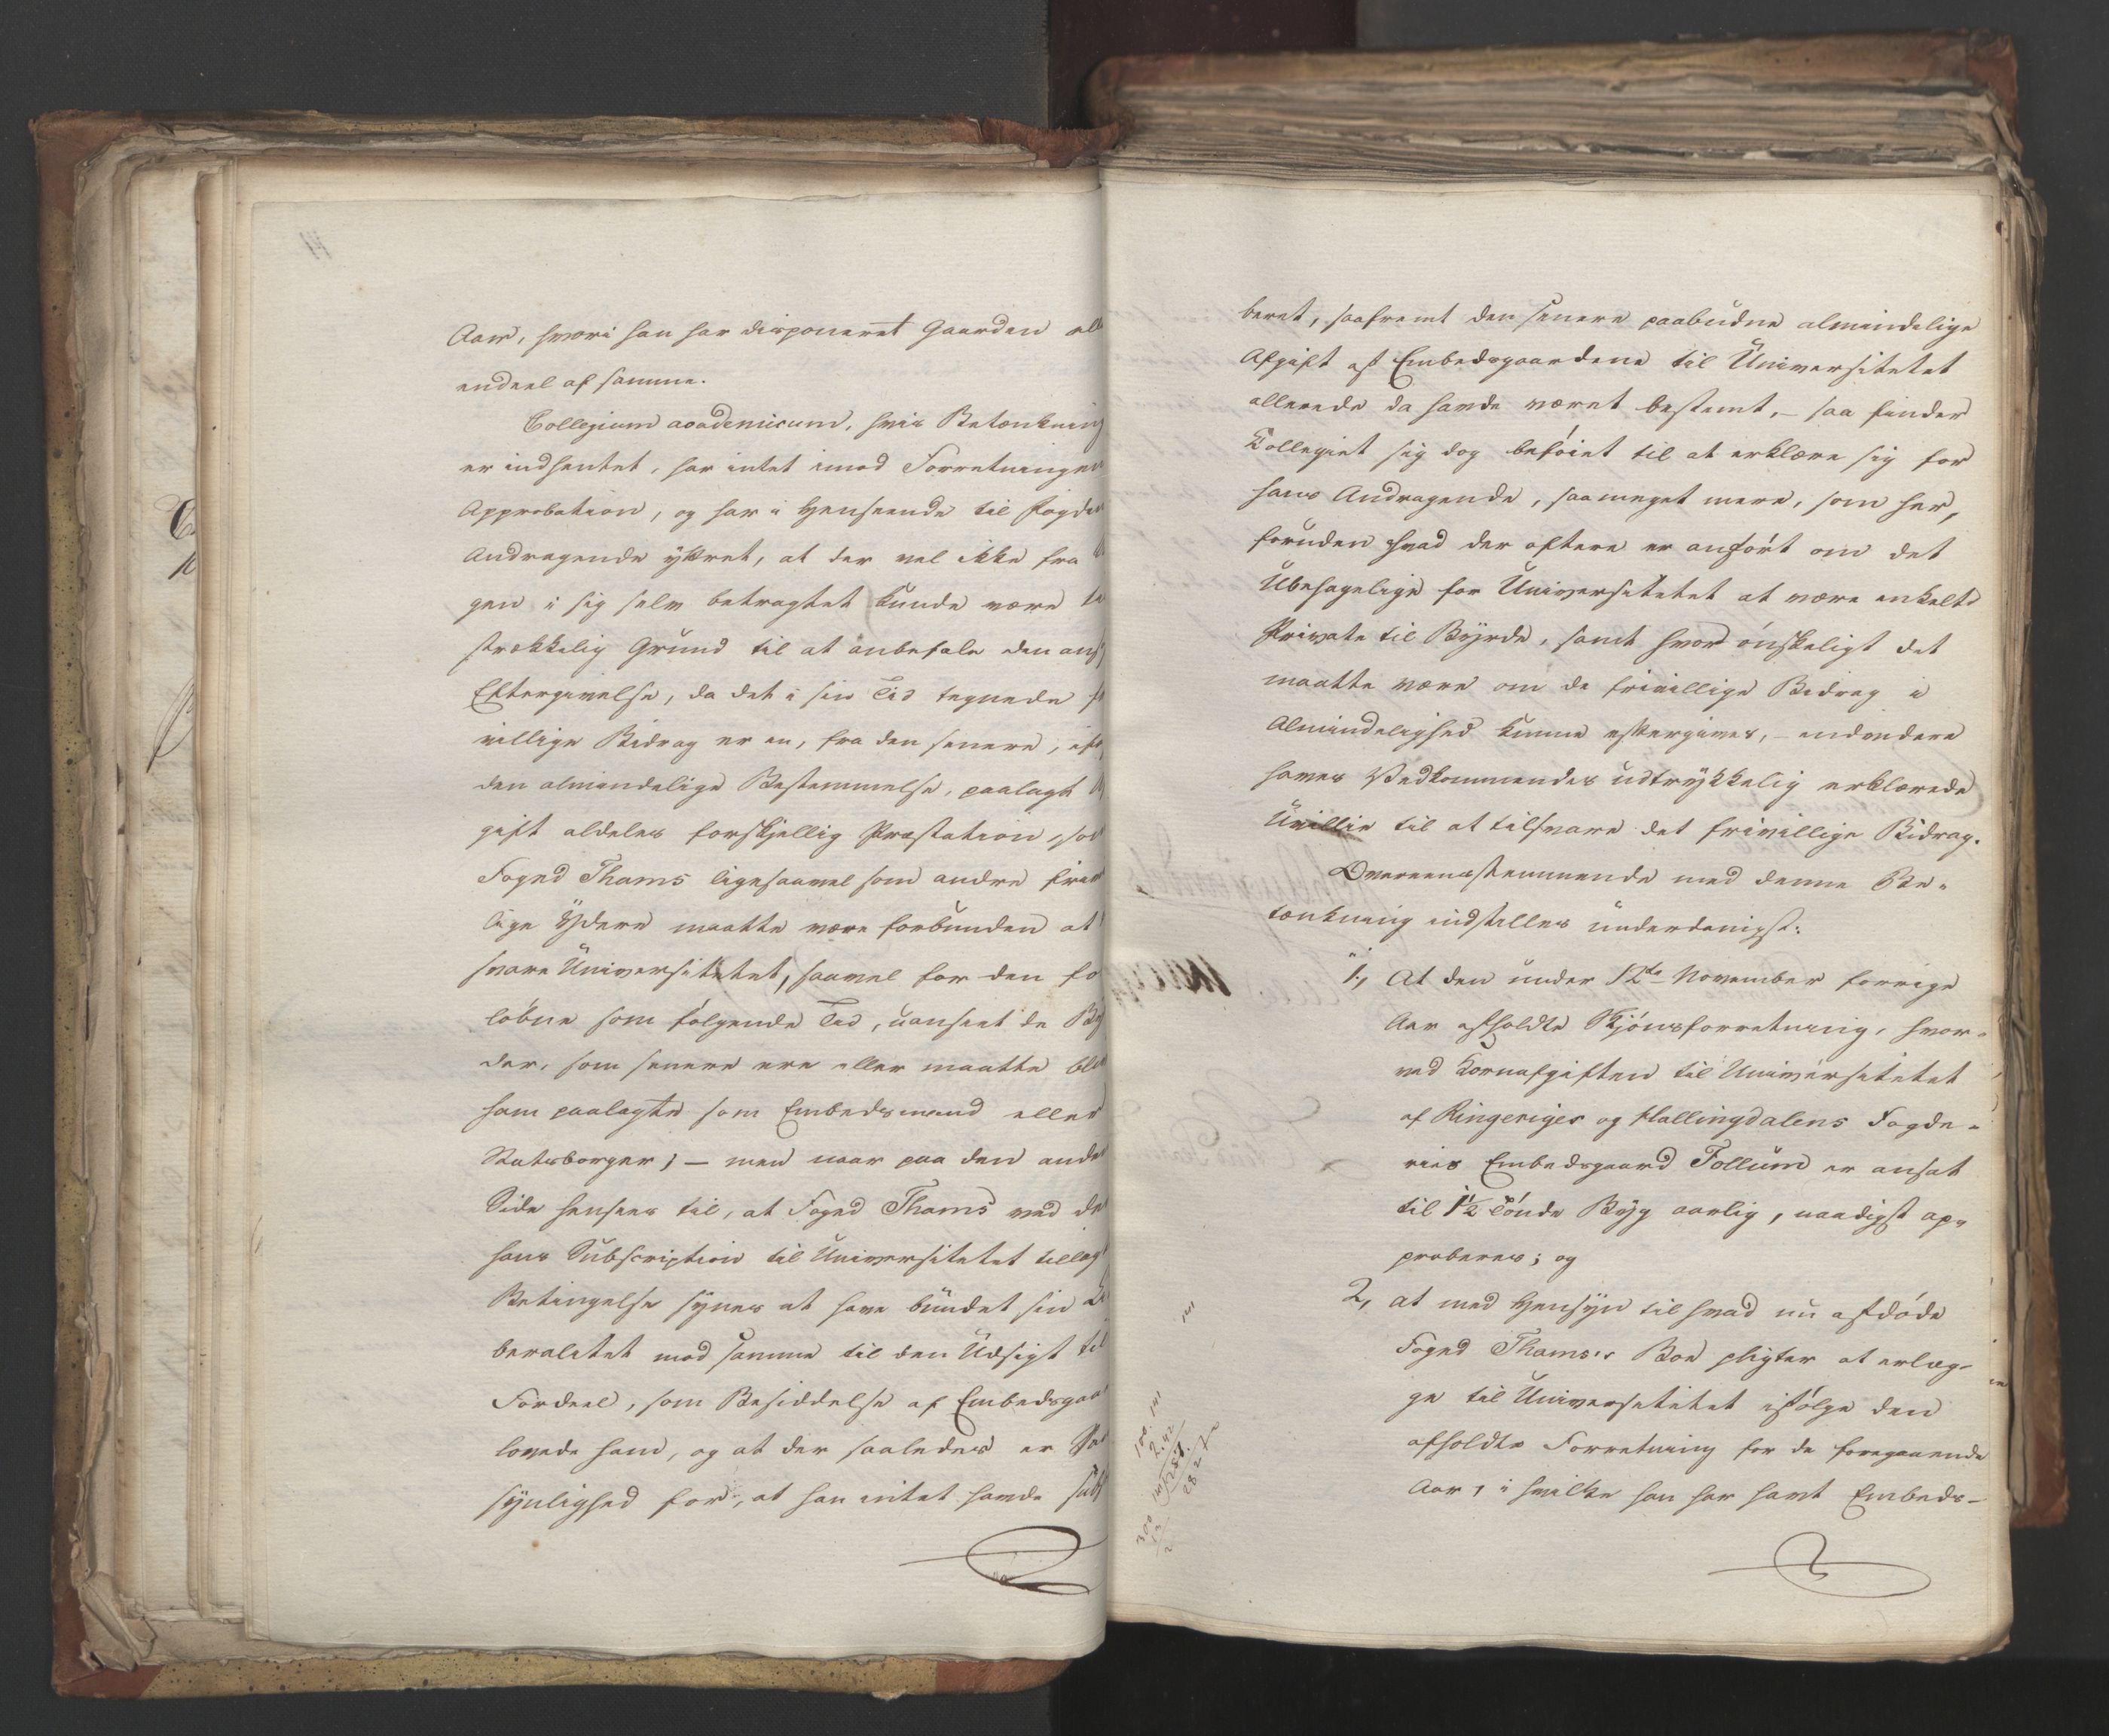 Aar, hvori han har disponeret Gaarden ell
endeel af samme.
Collegium academicum, hvis Betænkning
er indhentet, har intet imod Forretningens
Approbation, og har i Henseende til Fogdens
Andragende ÿttret, at der vel ikke fra
gen i sig selv betragtet kunde være til
strækkelig Grund til at anbefale den ans
Eftergivelse, da det i sin Tid tegnede fr
villige Bidrag er en, fra den senere, eft
den almindelige Bestemmelse, paalagte
gift aldeles forskjellig Præstation, som
Foged Thams ligesaavel som andre friv
lige Ÿdere maatte være forbunden at
svare Universitetet, saavel for den for
løbne som følgende Tid, uanseet de Bÿr
der, som senere ere eller maatte blive
ham paalagte som Embedsmand eller
Statsborger; – men naar paa den anden
Side hensees til, at Foged Thams ved den
hans Subscription til Universitetet tillagte
Betingelse sÿnes at have bundet sin Li
beralitet mod samme til den Udsigt til
Fordeel, som Besiddelse af Embedsgaar
lovede ham, og at der saaledes er San
sÿnlighed for, at han intet havde subs
beret, saafremt den senere paabudne almindelige
Afgift af Embedsgaardene til Universitetet
allerede da havde været bestemt, – saa finder
Collegiet sig dog beføiet til at erklære sig for
hans Andragende, saameget mere, som her,
foruden hvad der oftere er anført om det
Ubehagelige for Universitetet at være enkelte
Private til Bÿrde, samt hvor ønskeligt det
maatte være om de frivillige Bidrag i
Almindelighed kunne eftergives, – endvidere
haves Vedkommendes udtrÿkkelig erklærede
Uvillie til at tilsvare det frivillige Bidrag.
Overeensstemmende med denne Be-
tænkning indstilles underdanigst:
1., At den under 12te November forrige
Aar afholdte Skjønsforretning, hvor-
ved Kornafgiften til Universitetet
af Ringeriges og Hallingdalens Fogde-
ries Embedsgaard Follum er ansat
til 1½ Tønde Bÿg aarlig, naadigst ap-
proberes; og
2, at med Hensÿn til hvad nu afdøde
Foged Thams's Boe pligter at erlæg-
ge til Universitetet ifølge den
afholdte Forretning for de foregaaende
Aar, i hvilke han har havt Embeds-